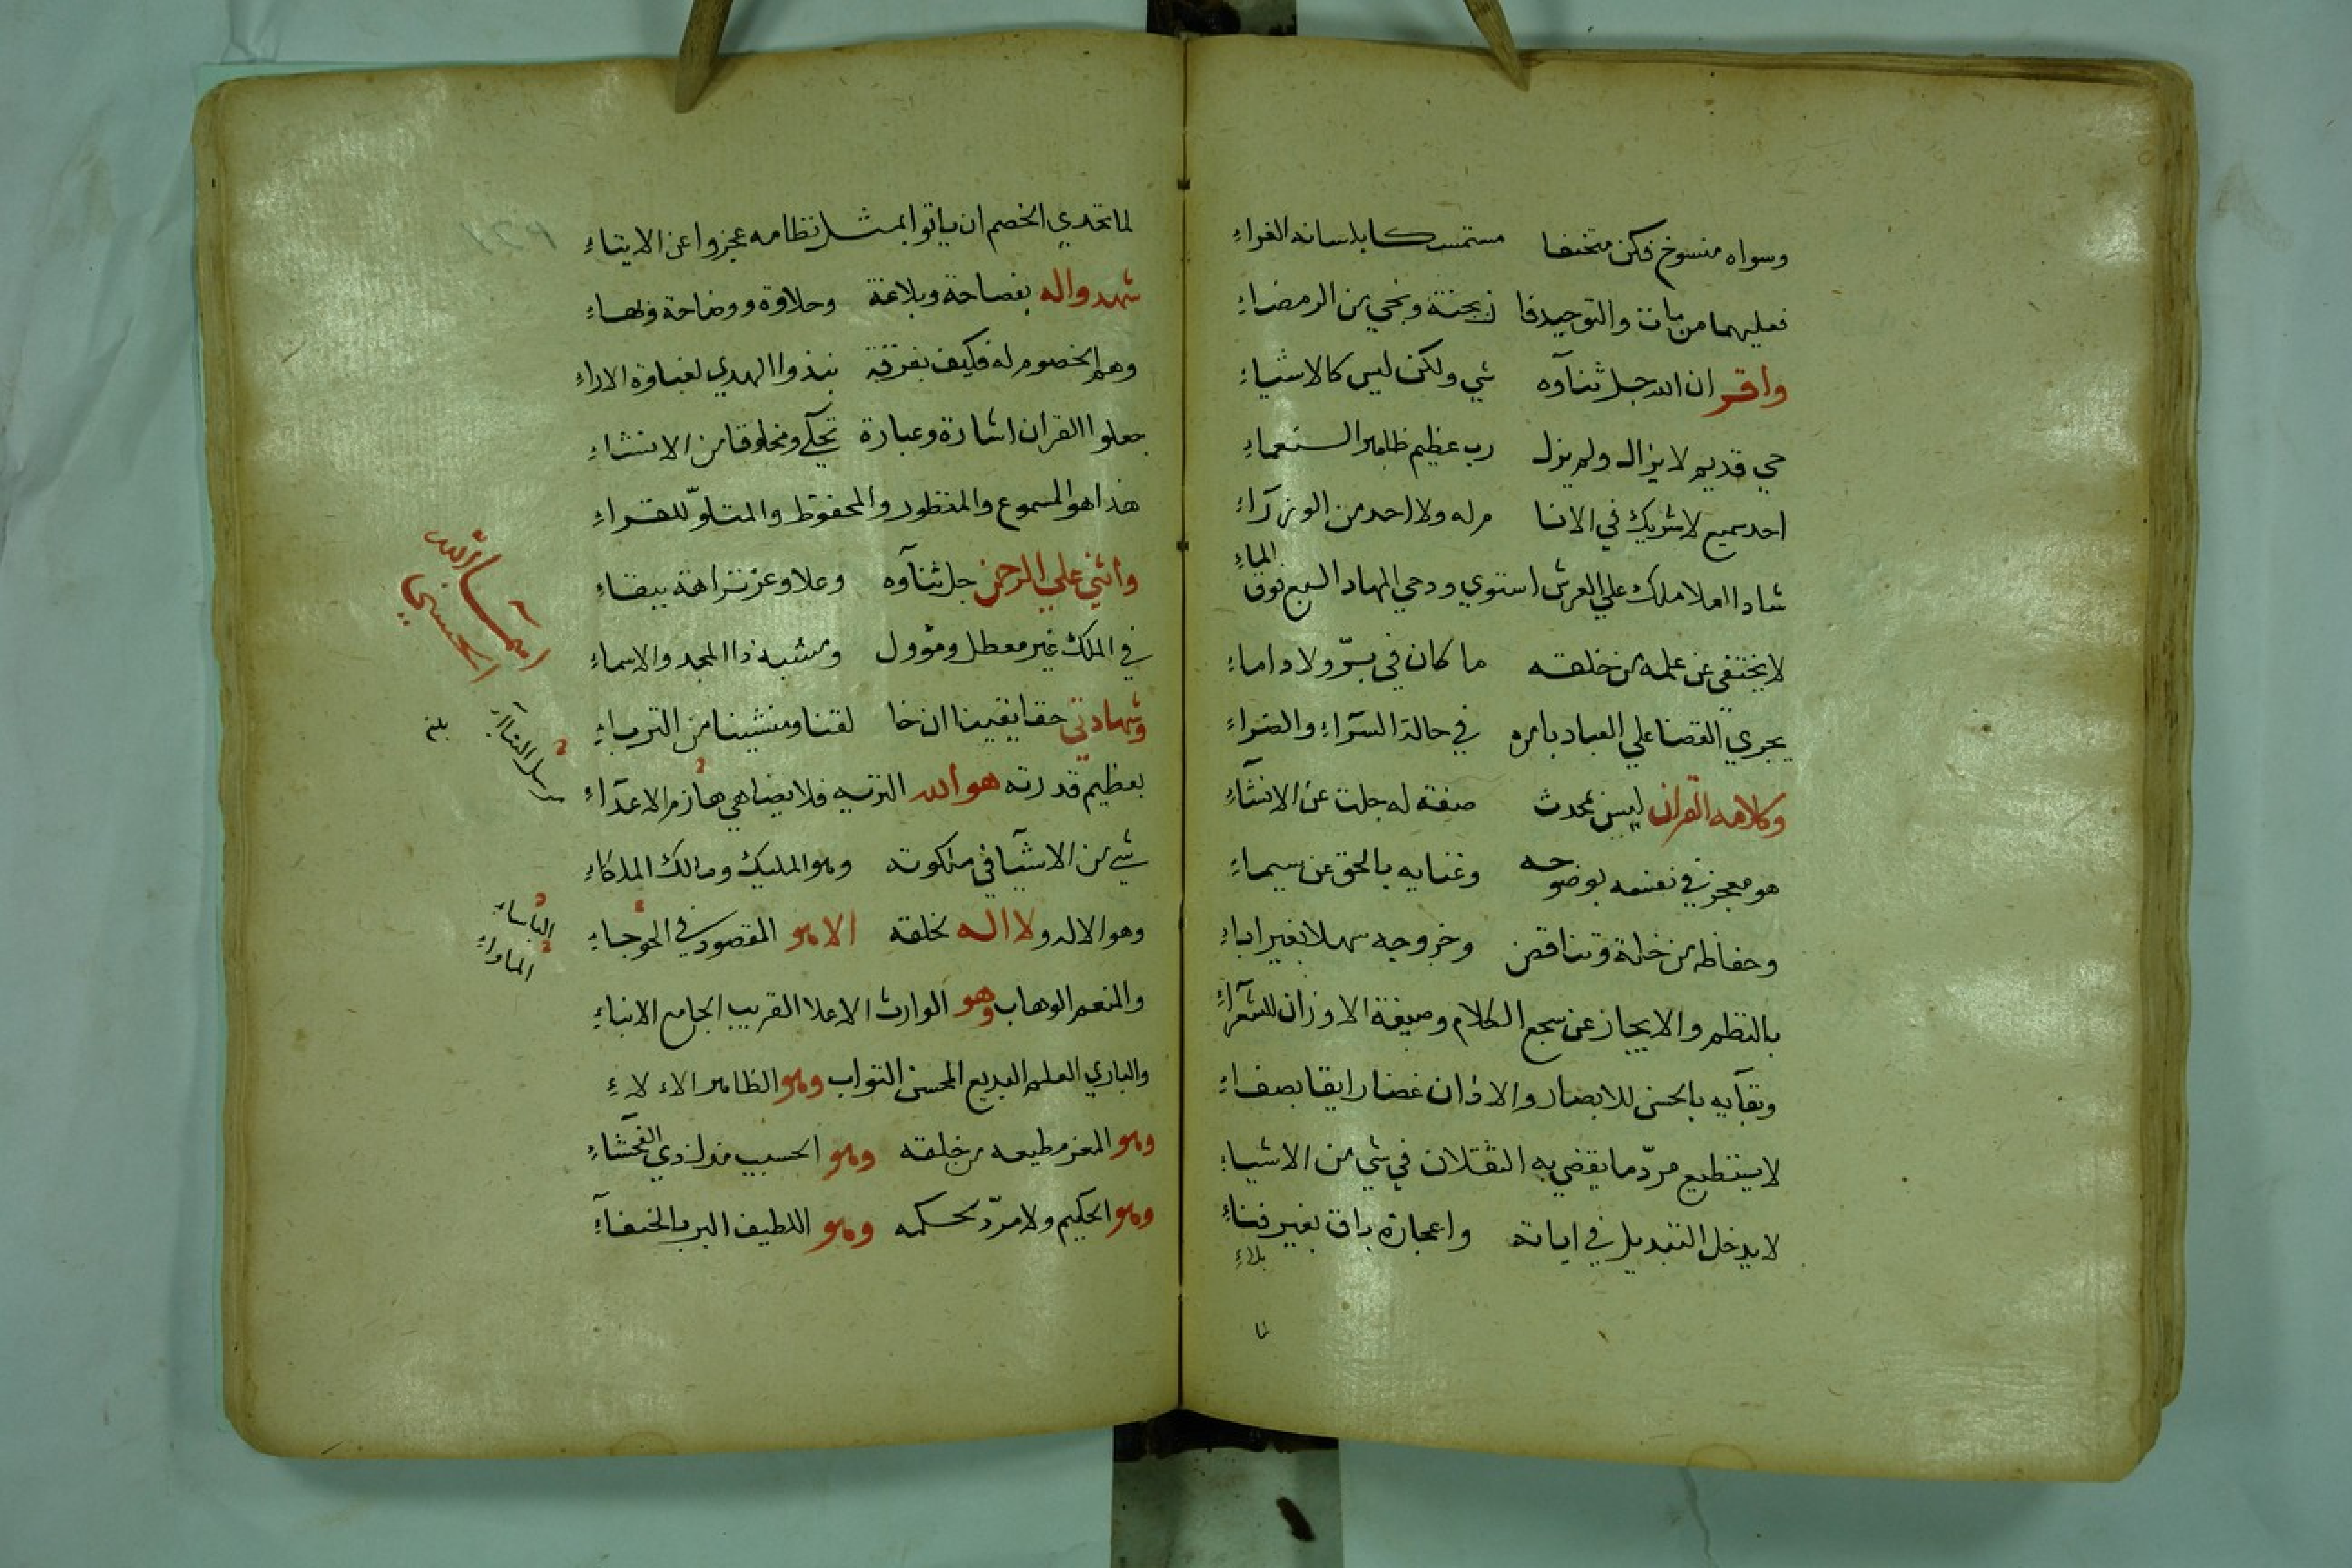 وسواه منسوخ فكن متحنفا مستمسكا بلسانه الغراء
فعليهما من مات والتوحيد فا ز بجنة ونجي من الرمضاء
واقر ان الله جل ثنآوه شي ولكن ليس كالاشياء
حي قديم لا يزال ولم يزل رب عظيم ظاهر النعماء
احد سميع لا شريك في الانا م له ولا احد من الوزرآء
شاد العلا ملك علي العرش استوي ودحي المهاد السبع فوق الماء
لا يختفي عن علمه من خلقه ما كان في برّ ولا داماء
يجري القضا علي العباد بامره في حالة السرآء والضراء
وكلامه القران ليس بمحدث صفة له جلت عن الانشآء
هو معجز في نفسه بوضوحه وغنايه بالحق عن سيماء
وحفاظه من خلة وتناقض وخروجه سهلا بغير اباء
بالنظم والايجاز عن سجع الكلام وصيغة الاوزان للشعرآء
وبقآيه بالحسن للابصار والاذان غضا رايقا بصفاء
لا يستطيع مردّ ما يقضي به الثقلان في شي من الاشياء
لا يدخل التبديل في اياته واعجازة باق بغير فناء
بلاء
لما
لما تحدي الخصم ان ياتوا بمثل نظامه عجزوا عن الايتاء
شهدوا له بفصاحة وبلاغة وحلاوة ووضاحة وبهاء
وهم الخصوم له فكيف بفرقة نبذوا الهدي لغباوة الاراء
جعلوا القران اشارة وعبارة تحكي ومخلوقا من الانشاء
هذا هو المسموع والمنظور والمحفوظ والمتلوّ للقراء
واثني علي الرحمن جل ثنآوه وعلا وعز نزاهة ببقاء
في الملك غير معطل ومؤول ومشبه ذا المجد والاسماء
وشهادتي حقا يقينا ان خا لقنا ومنشينا من الترباء
بعظيم قدرته هو الله النزيه فلا يضاهي هازم الاعدآء
شي من الاشيآ في ملكوته وهو المليك ومالك الملكاء
وهو الاله ولا اله لخلقه الا هو المقصود في الحوجاء
والمنعم الوهاب وهو الوارث الاعلا القريب الجامع الانباء
والباري العلم البديع المحسن التواب وهو الظاهر الالاء
وهو المعز مطيعه من خلقه وهو الحسيب مذل ذي الفحشاء
وهو الحكيم ولا مردّ لحكمه وهو اللطيف البر بالخنفآء
الحسني
بلغ
الباساء